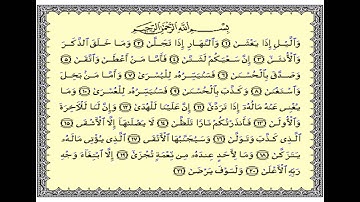 بِسْمِ اللَّهِ الرَّحْمَٰنِ الرَّحِيمِ
وَاللَّيْلِ إِذَا يَغْشَىٰ ١ وَالنَّهَارِ إِذَا تَجَلَّىٰ ٢ وَمَا خَلَقَ الذَّكَرَ
وَالْأُنثَىٰ ٣ إِنَّ سَعْيَكُمْ لَشَتَّىٰ ٤ فَأَمَّا مَنْ أَعْطَىٰ وَاتَّقَىٰ ٥
وَصَدَّقَ بِالْحُسْنَىٰ ٦ فَسَنُيَسِّرُهُ لِلْيُسْرَىٰ ٧ وَأَمَّا مَنْ بَخِلَ
وَاسْتَغْنَىٰ ٨ وَكَذَّبَ بِالْحُسْنَىٰ ٩ فَسَنُيَسِّرُهُ لِلْعُسْرَىٰ ١٠ وَمَا
يُغْنِي عَنْهُ مَالُهُ إِذَا تَرَدَّىٰ ١١ إِنَّ عَلَيْنَا لَلْهُدَىٰ ١٢ وَإِنَّ لَنَا لَلْآخِرَةَ
وَالْأُولَىٰ ١٣ فَأَنذَرْتُكُمْ نَارًا تَلَظَّىٰ ١٤ لَا يَصْلَاهَا إِلَّا الْأَشْقَى ١٥
الَّذِي كَذَّبَ وَتَوَلَّىٰ ١٦ وَسَيُجَنَّبُهَا الْأَتْقَى ١٧ الَّذِي يُؤْتِي مَالَهُ
يَتَزَكَّىٰ ١٨ وَمَا لِأَحَدٍ عِندَهُ مِن نِّعْمَةٍ تُجْزَىٰ ١٩ إِلَّا ابْتِغَاءَ وَجْهِ
رَبِّهِ الْأَعْلَىٰ ٢٠ وَلَسَوْفَ يَرْضَىٰ ٢١